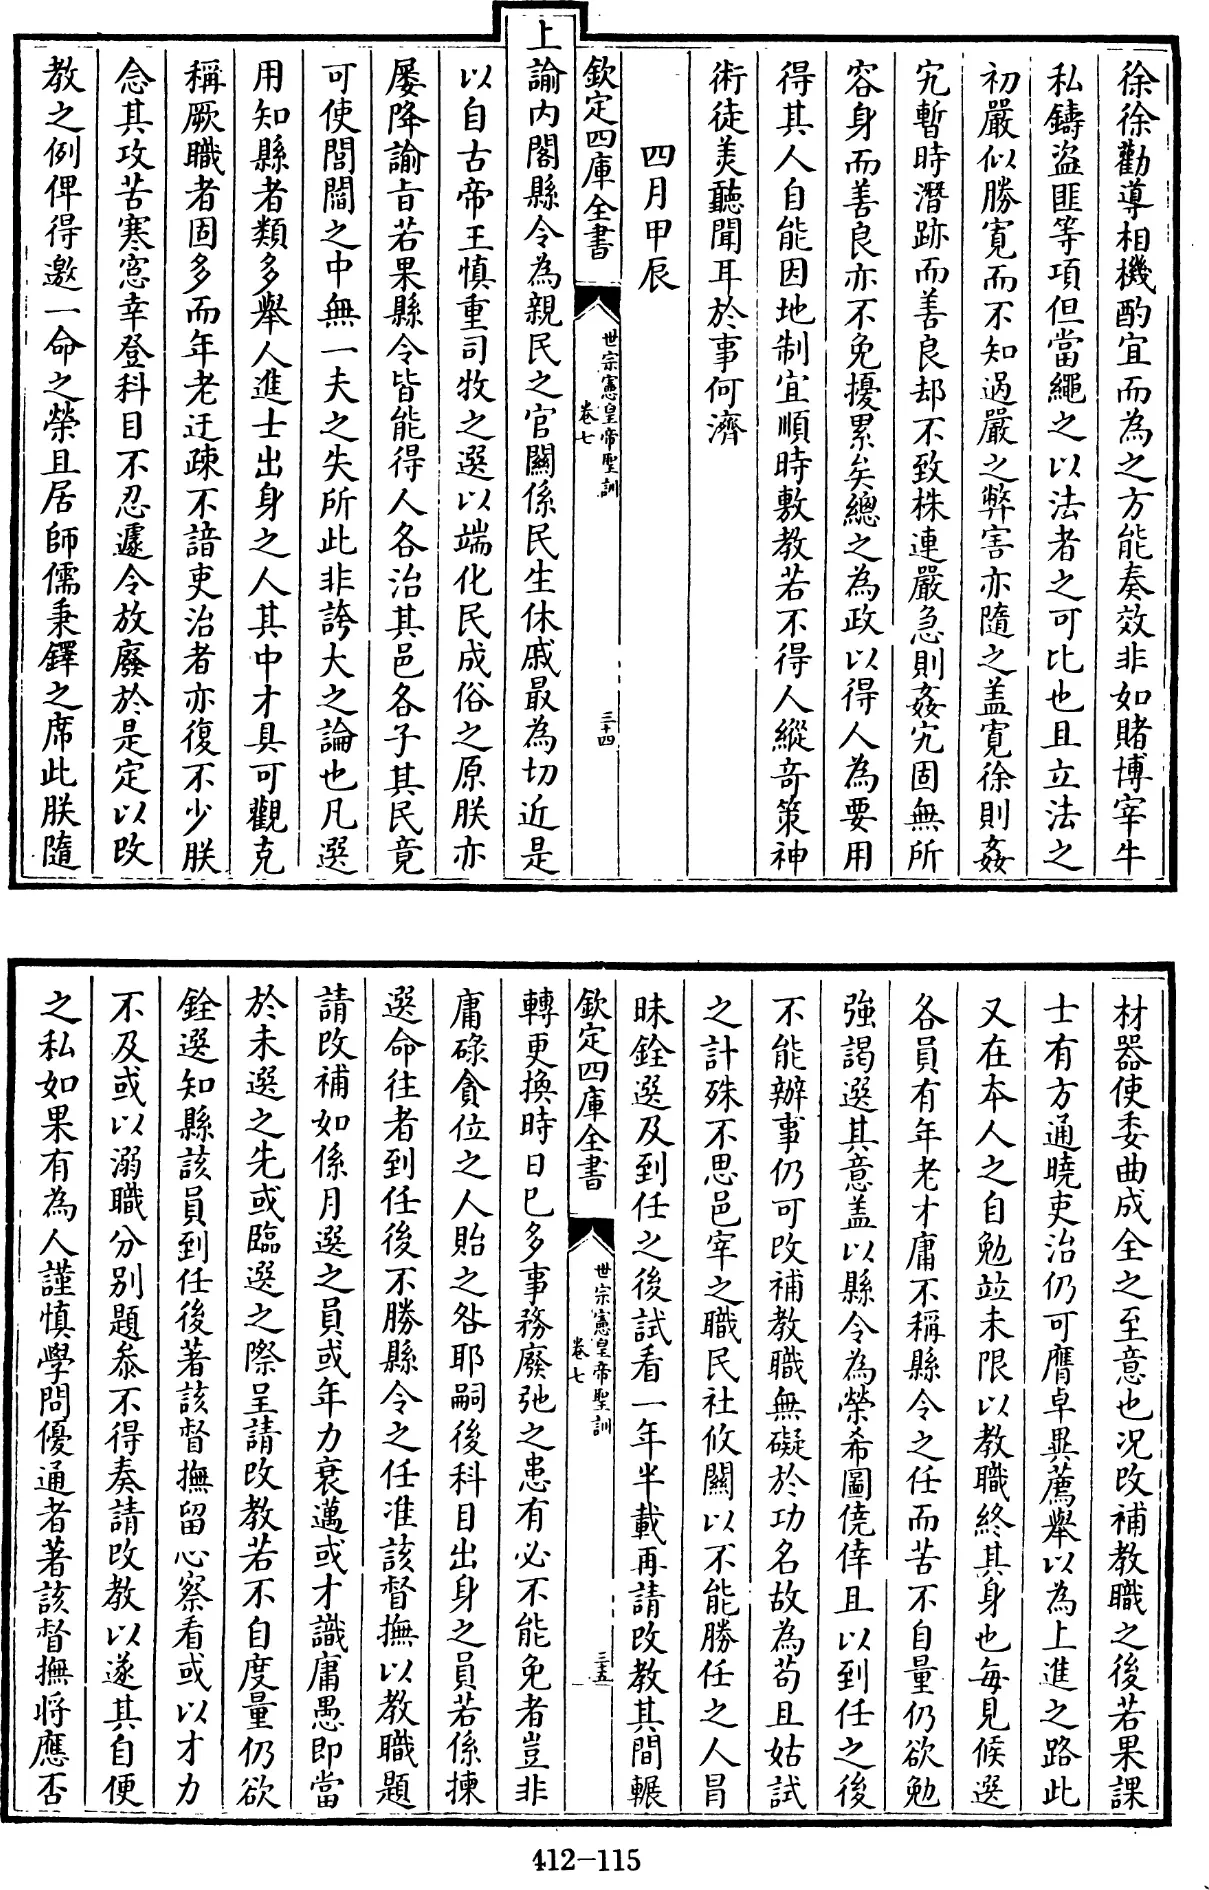 徐徐勸導相機酌宜而為之方能奏效非如賭博宰牛
私鑄盜匪等項但當繩之以法者之可比也且立法之
初嚴似勝寛而不知過嚴之弊害亦隨之盖寛徐則姦
宄暫時潛跡而善良却不致株連嚴急則姦宄固無所
容身而善良亦不免擾累矣總之為政以得人為要用
得其人自能因地制宜順時敷教若不得人縱竒策神
術徒美聽聞耳於事何濟
四月甲辰
欽定四庫全書
世宗憲皇帝聖訓
卷七
三十四
上諭内閣縣令為親民之官關係民生休戚最為切近是
以自古帝王慎重司牧之選以端化民成俗之原朕亦
屢降諭旨若果縣令皆能得人各治其邑各子其民竟
可使閭閻之中無一夫之失所此非誇大之論也凡選
用知縣者類多舉人進士出身之人其中才具可觀克
稱厥職者固多而年老迂疎不諳吏治者亦復不少朕
念其攻苦寒窓幸登科目不忍遽令放廢於是定以改
教之例俾得邀一命之榮且居師儒秉鐸之席此朕隨
材器使委曲成全之至意也况改補教職之後若果課
士有方通曉吏治仍可膺卓異薦舉以為上進之路此
又在本人之自勉並未限以教職終其身也每見候選
各員有年老才庸不稱縣令之任而苦不自量仍欲勉
強謁選其意盖以縣令為榮希圖僥倖且以到任之後
不能辦事仍可改補教職無礙於功名故為苟且姑試
之計殊不思邑宰之職民社攸關以不能勝任之人冒
昧銓選及到任之後試看一年半載再請改教其間輾
欽定四庫全書
世宗憲皇帝聖訓
卷七
三十五
轉更換時日已多事務廢弛之患有必不能免者豈非
庸碌貪位之人貽之咎耶嗣後科目出身之員若係揀
選命往者到任後不勝縣令之任准該督撫以教職題
請改補如係月選之員或年力衰邁或才識庸愚即當
於未選之先或臨選之際呈請改教若不自度量仍欲
銓選知縣該員到任後著該督撫留心察看或以才力
不及或以溺職分别題叅不得奏請改教以遂其自便
之私如果有為人謹慎學問優通者著該督撫將應否
412-115